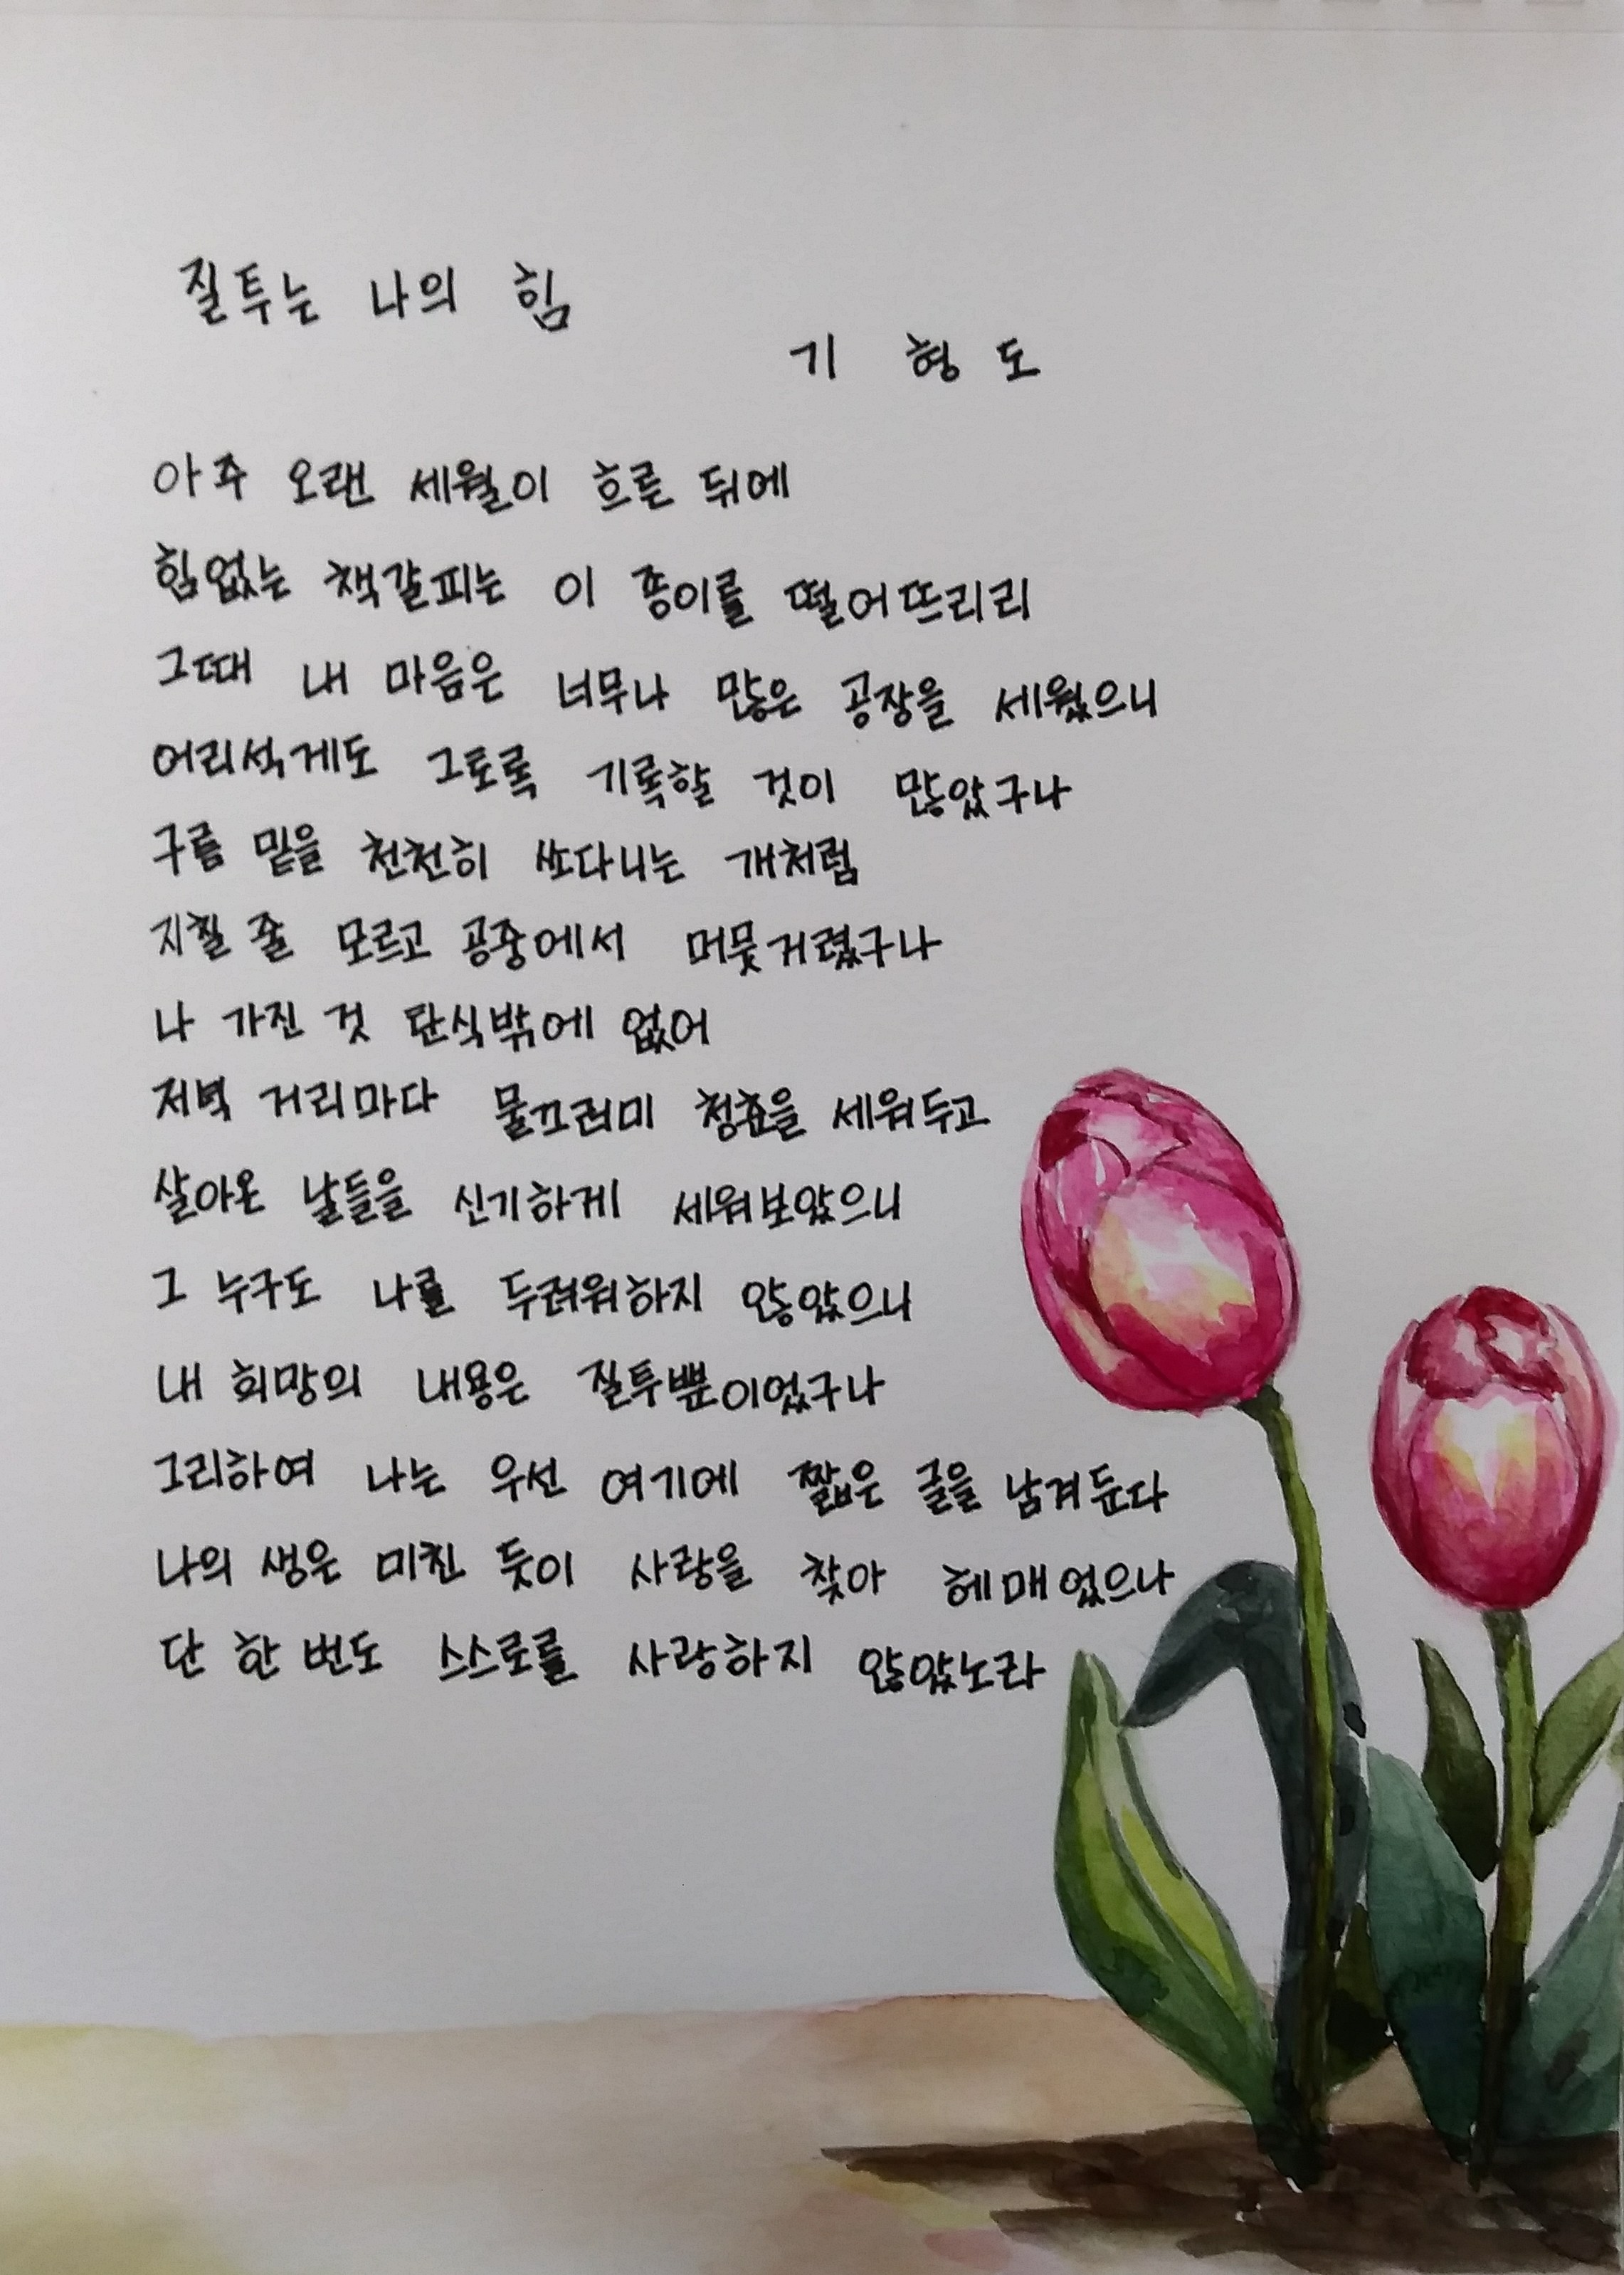 질투는 나의 힘
기 형 도
아주 오랜 세월이 흐른 뒤에
힘없는 책갈피는 이 종이를 떨어뜨리리
그때 내 마음은 너무나 많은 공장을 세웠으니
어리석게도 그토록 기록할 것이 많았구나
구름 밑을 천천히 쏘다니는 개처럼
지칠 줄 모르고 공중에서 머뭇거렸구나
나 가진 것 탄식밖에 없어
저녁 거리마다 물끄러미 청춘을 세워두고
살아온 날들을 신기하게 세워보았으니
그 누구도 나를 두려워하지 않았으니
내 희망의 내용은 질투뿐이었구나
그리하여 나는 우선 여기에 짧은 글을 남겨둔다
나의 생은 미친 듯이 사랑을 찾아 헤매었으나
단 한 번도 스스로를 사랑하지 않았노라